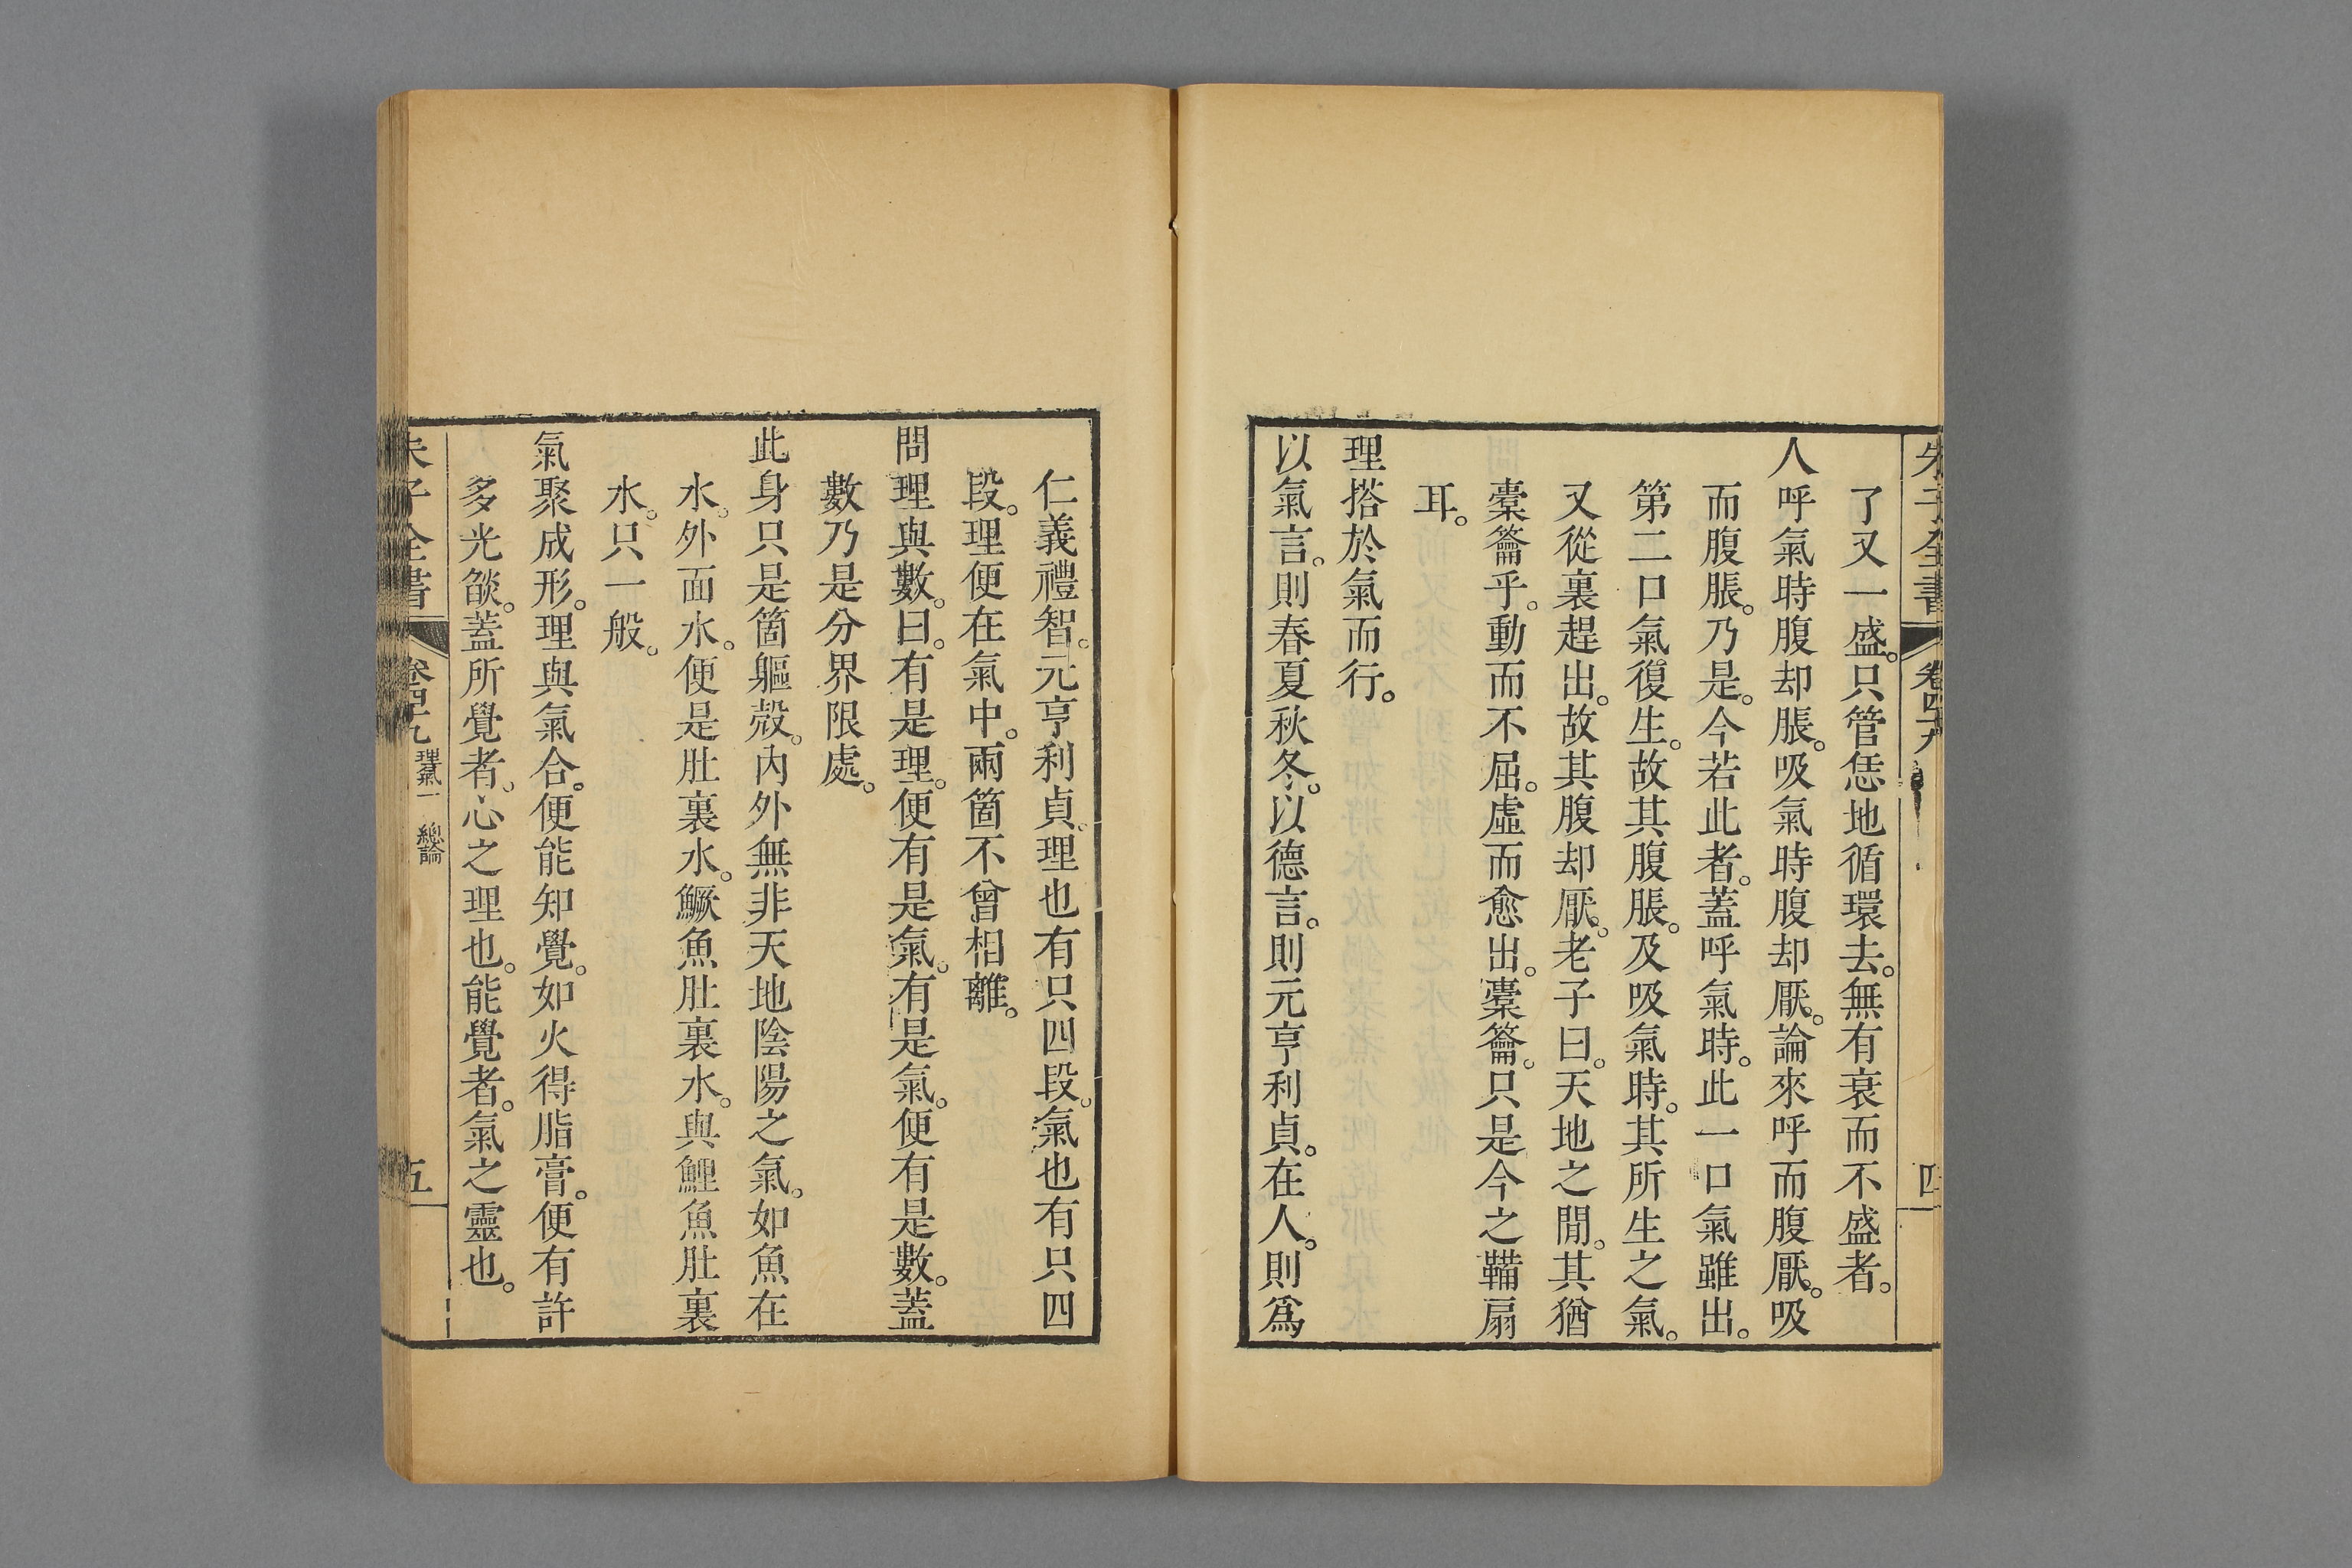 朱子全書 卷四十九 四
了又一盛。只管恁地循環去。無有衰而不盛者。
人呼氣時腹却脹。吸氣時腹却厭。論來呼而腹厭。吸
而腹脹。乃是。今若此者。蓋呼氣時。此一口氣雖出。
第二口氣復生。故其腹脹。及吸氣時。其所生之氣。
又從裏趕出。故其腹却厭。老子曰。天地之閒。其猶
橐籥乎。動而不屈。虛而愈出。橐籥。只是今之鞴扇
耳。
理搭於氣而行。
以氣言。則春夏秋冬。以德言。則元亨利貞。在人。則爲
仁義禮智。元亨利貞。理也有只四段。氣也有只四
段。理便在氣中。兩箇不曾相離。
問理與數。曰。有是理。便有是氣。有是氣。便有是數。蓋
數乃是分界限處。
此身只是箇軀殼。內外無非天地陰陽之氣。如魚在
水。外面水。便是肚裏水。鱖魚肚裏水。與鯉魚肚裏
水。只一般。
氣聚成形。理與氣合。便能知覺。如火得脂膏。便有許
多光燄。蓋所覺者。心之理也。能覺者。氣之靈也。
朱子全書 卷四十九 理氣一 總論 五